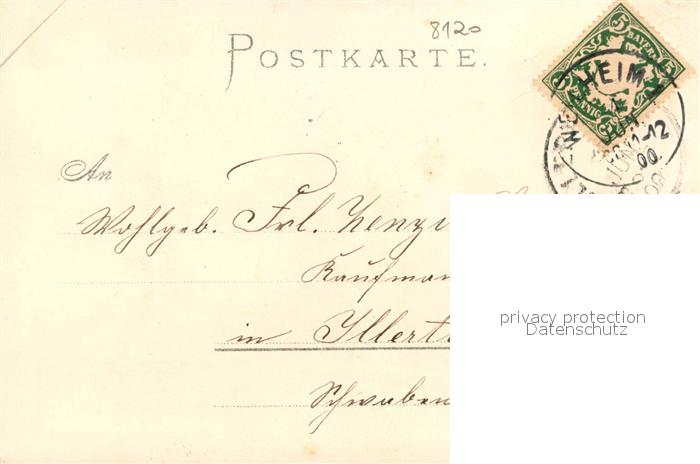 8120
POSTKARTE.
5 BAYERN 5
PFENNIG
HEIM
11-12
00
JUN
An
Wohlgeb. Frl. Zenzi
Kaufman
in Illert
Schwaben
privacy protection
Datenschutz